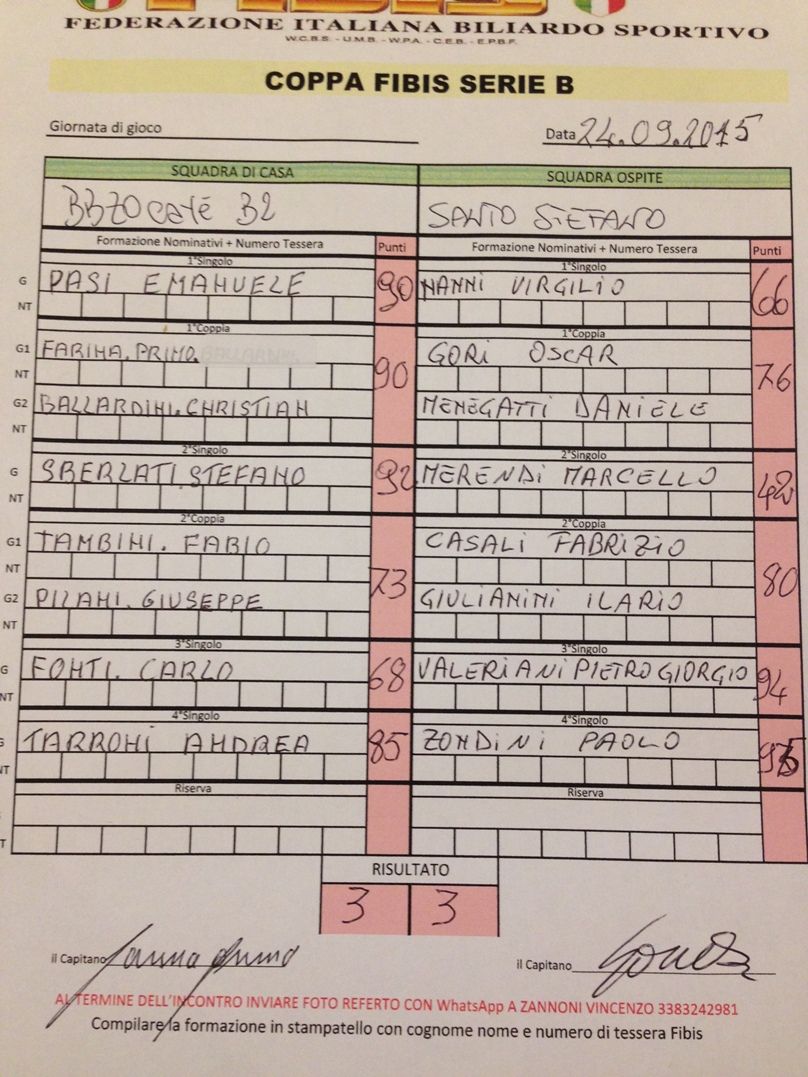 FEDERAZIONE ITALIANA BILIARDO SPORTIVO
W.C.B.S. - U.M.B. - W.P.A. - C.E.B. - E.P.B.F.
COPPA FIBIS SERIE B
Giornata di gioco
Data 24.09.2015
SQUADRA DI CASA SQUADRA OSPITE
BBZOCafé B2 SANTO STEFANO
Formazione Nominativi + Numero Tessera Punti Formazione Nominativi + Numero Tessera Punti
1°Singolo 1°Singolo
G PASI EMANUELE 90 NANNI VIRGILIO 66
NT
1°Coppia 1°Coppia
G1 FARINA.PRIMO. GORI OSCAR
NT 90 76
G2 BALLARDINI.CHRISTIAN MENEGATTI DANIELE
NT
2°Singolo 2°Singolo
G SBERLATI.STEFANO 92 MERENDI MARCELLO 42
NT
2°Coppia 2°Coppia
G1 TAMBINI. FABIO CASALI FABRIZIO
NT 73 80
G2 PILANI. GIUSEPPE GIULIANINI ILARIO
NT
3°Singolo 3°Singolo
G FONTI. CARLO 68 VALERIANI PIETRO GIORGIO 94
NT
4°Singolo 4°Singolo
G TARRONI ANDREA 85 ZONDINI PAOLO
NT
Riserva Riserva
RISULTATO
3 3
il Capitano il Capitano
AL TERMINE DELL'INCONTRO INVIARE FOTO REFERTO CON WhatsApp A ZANNONI VINCENZO 3383242981
Compilare la formazione in stampatello con cognome nome e numero di tessera Fibis